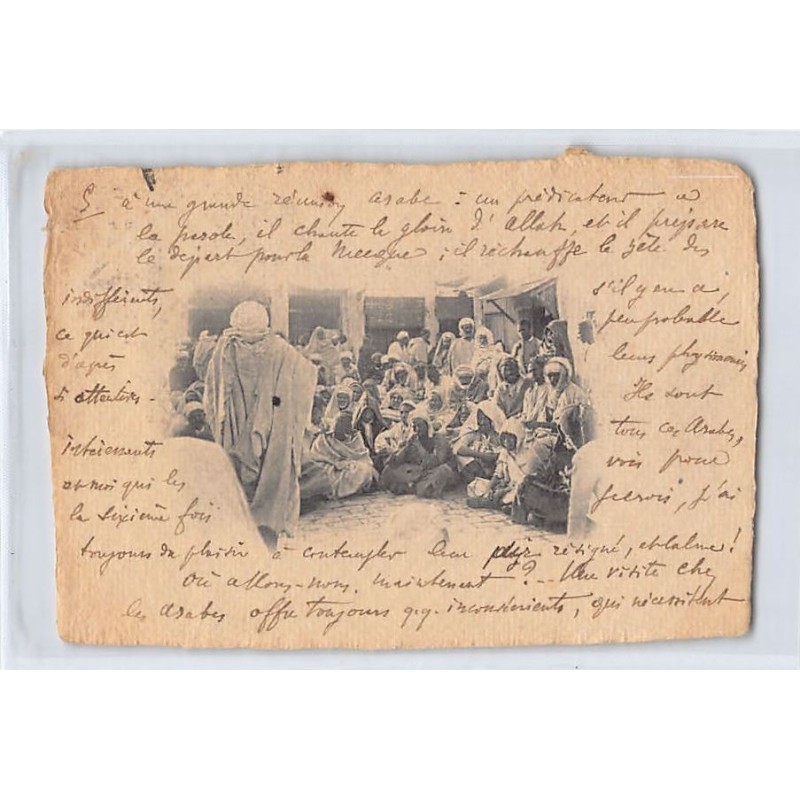 5 à une grande réunion arabe : un prédicateur a
la parole, il chante la gloire d'Allah, et il prépare
le départ pour la Mecque ; il réchauffe le zèle des
indifférents, s'il y en a,
ce qui est peu probable
d'après leurs physionomies
si attentives - Ils sont
intéressants tous ces Arabes,
et moi qui les vois pour
la sixième fois je crois, j'ai
toujours du plaisir à contempler leur résigné, et calme !
Où allons-nous, maintenant ?... Une visite chez
les arabes offre toujours q.q. inconvénients, qui nécessitent